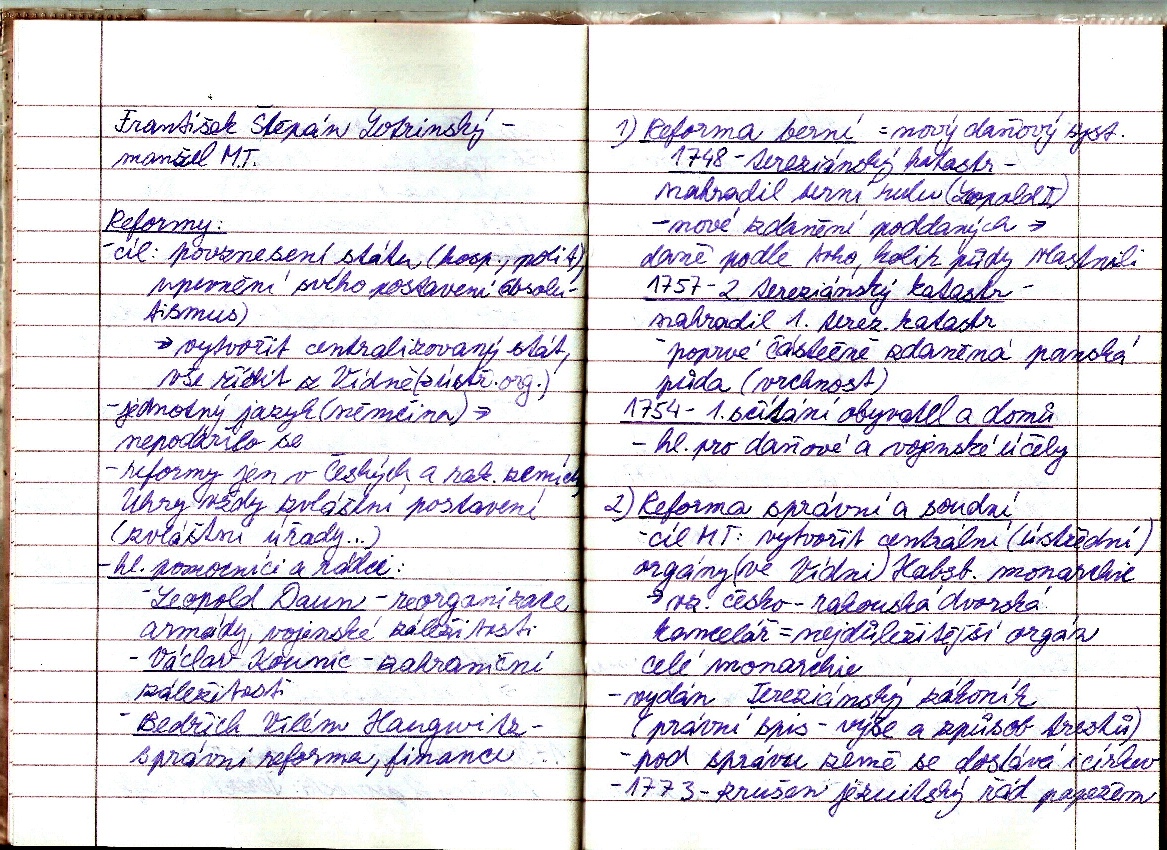 František Štěpán Lotrinský -
manžel M.T.
Reformy:
-cíl: povznesení státu (hosp., polit),
upevnění svého postavení (absolu-
tismus)
→ vytvořit centralizovaný stát,
vše řídit z Vídně (z ústř. org.)
-jednotný jazyk (němčina) →
nepodařilo se
-reformy jen v Českých a rak. zemích,
Uhry vždy zvláštní postavení
(zvláštní úřady...)
-hl. pomocníci a rádci:
-Leopold Daun - reorganizace
armády, vojenské záležitosti
-Václav Kounic - zahraniční
záležitosti
-Bedřich Vilém Haugwitz -
správní reforma, finance
1) Reforma berní = nový daňový syst.
1748 - tereziánský katastr -
nahradil berní rulu (Leopold I)
-nové zdanění poddaných →
daně podle toho, kolik půdy vlastnili
1757 - 2 tereziánský katastr -
nahradil 1. terez. katastr
-poprvé částečně zdaněná panská
půda (vrchnost)
1754 - 1. sčítání obyvatel a domů
- hl. pro daňové a vojenské účely
2) Reforma správní a soudní
-cíl MT: vytvořit centrální (ústřední)
orgány (ve Vídni) Habsb. monarchie
→ vz. česko-rakouská dvorská
kancelář = nejdůležitější orgán
celé monarchie
-vydán Tereziánský zákoník
(právní spis - výše a způsob trestů)
-pod správu země se dostává i církev
-1773 - zrušen jezuitský řád papežem